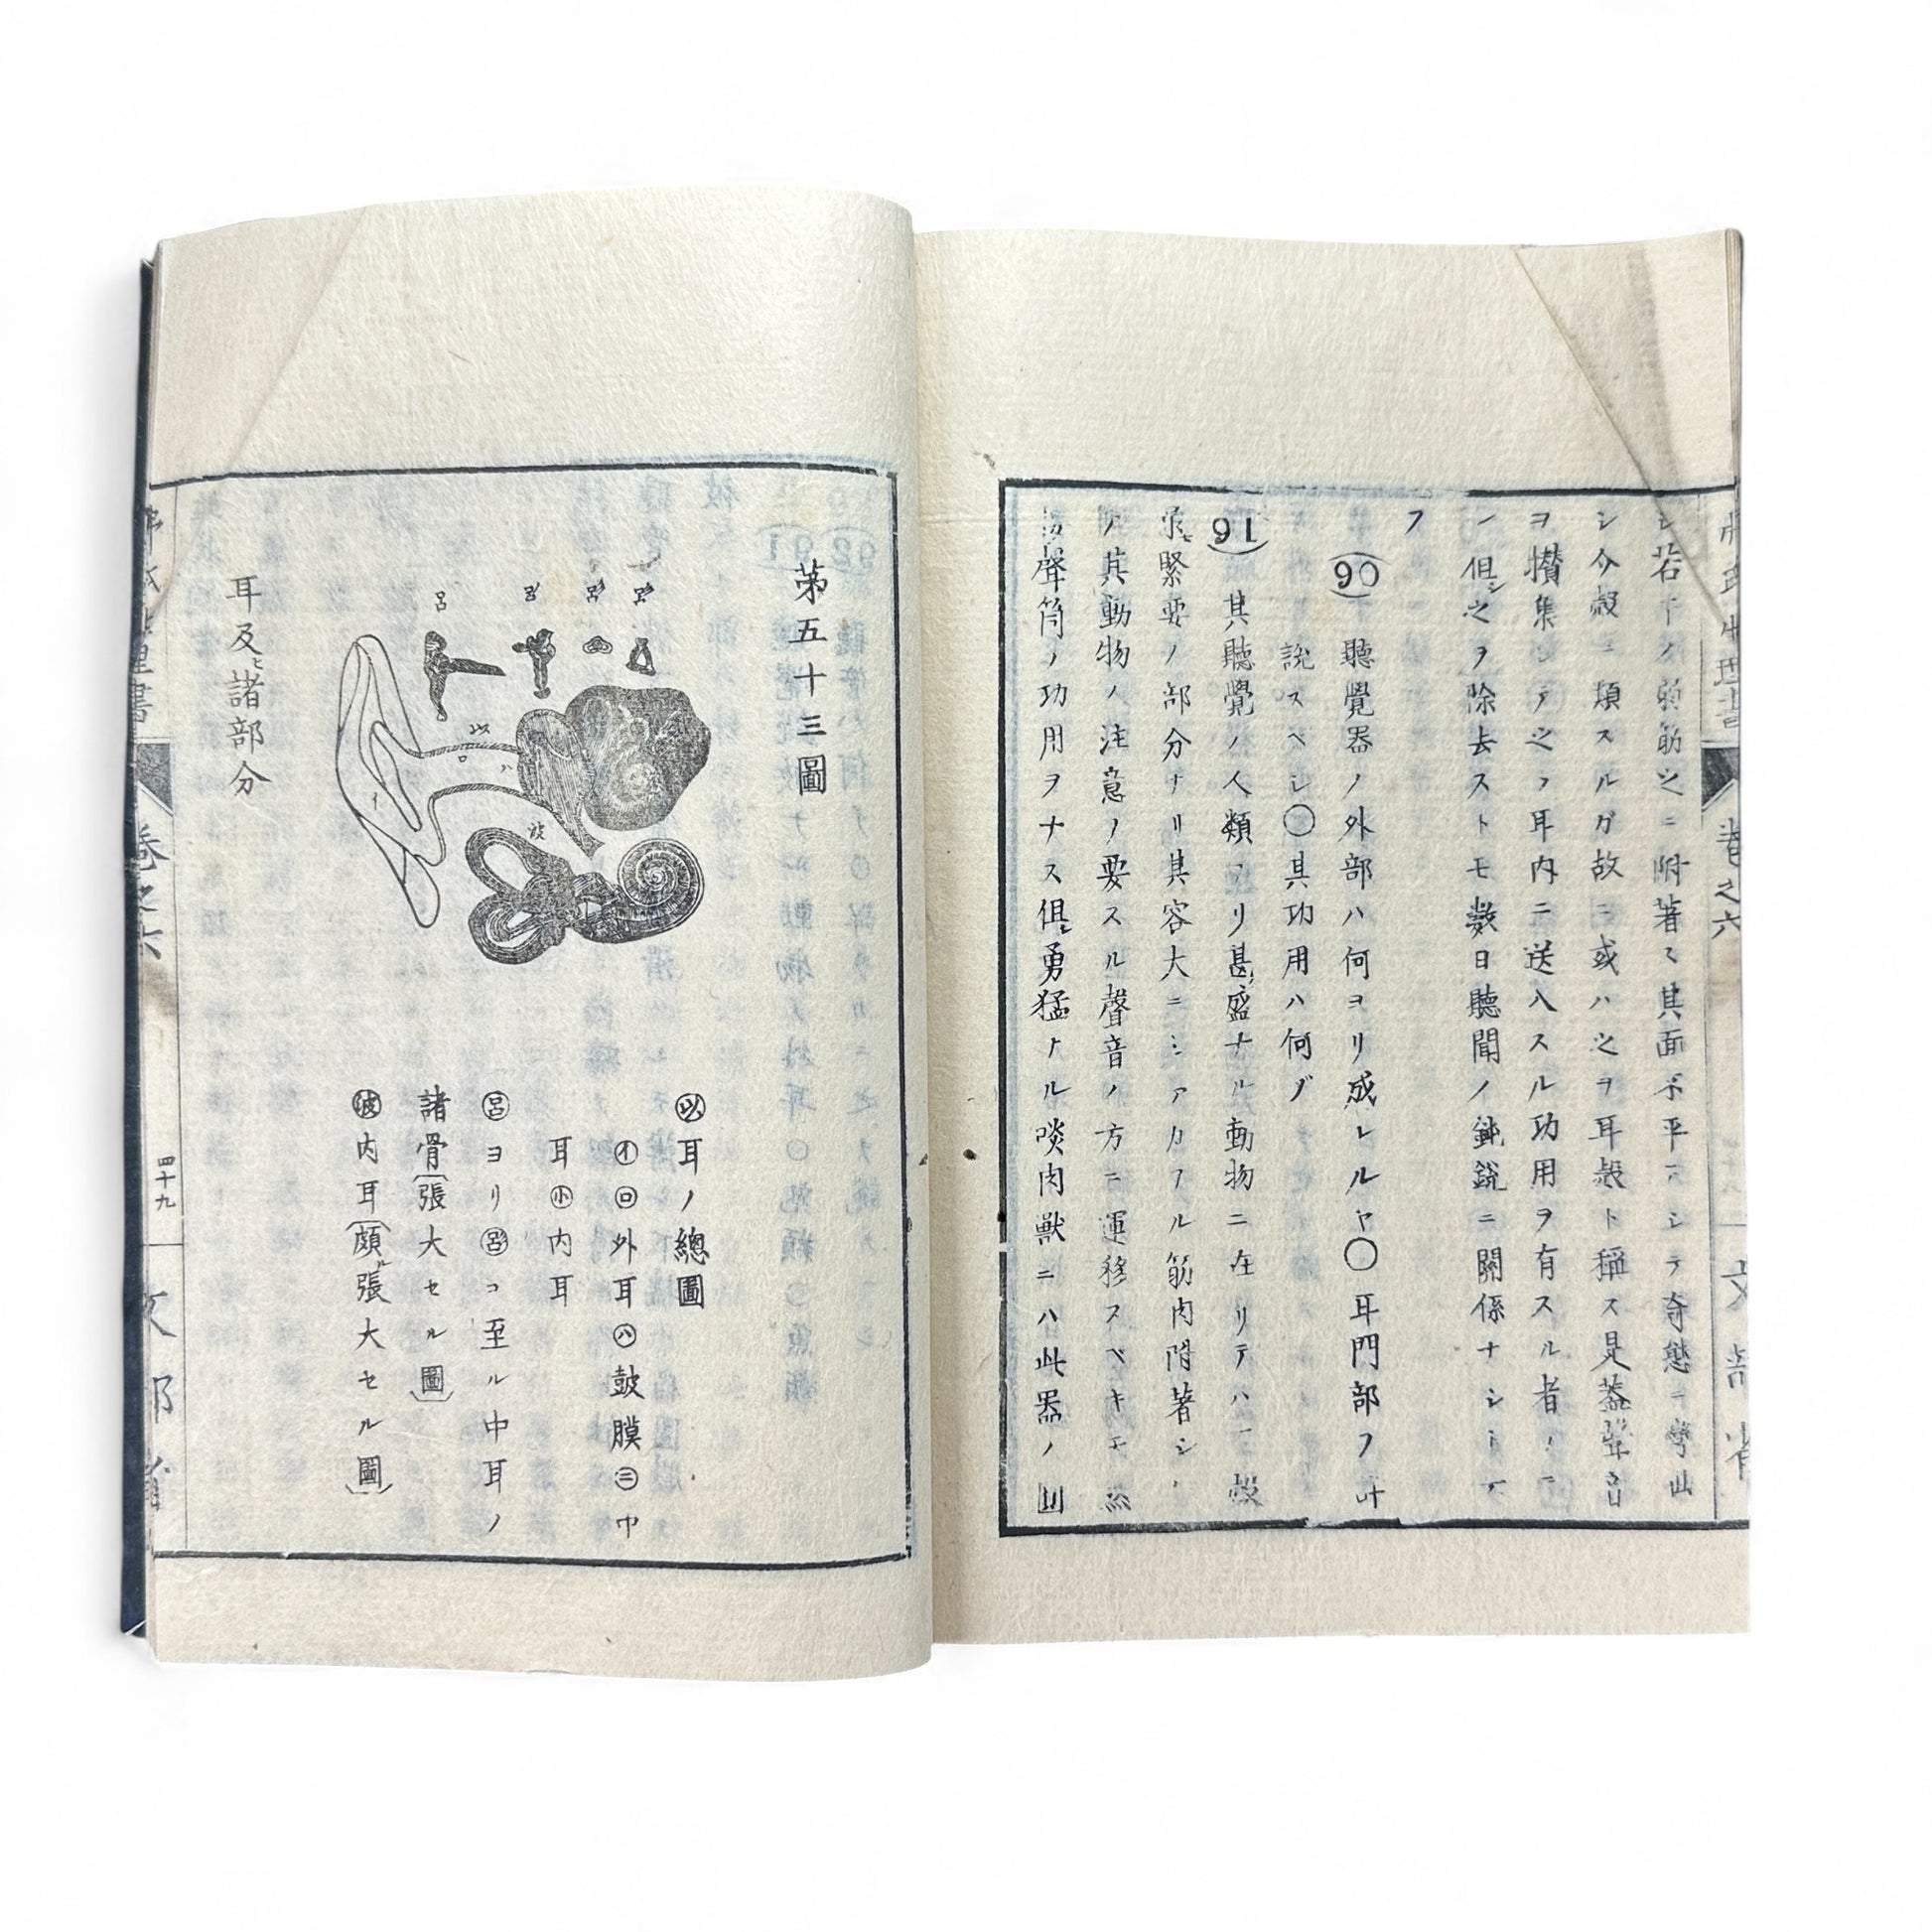 若干ノ弱筋之ニ附著シ其面不平ニシテ奇態ニ彎曲
シ介殻ニ類スルガ故ニ或ハ之ヲ耳殻ト稱ス是蓋聲音
ヲ攅集シテ之ヲ耳内ニ送入スル功用ヲ有スル者ノミ
但シ之ヲ除去ストモ数日聽聞ノ鈍銳ニ關係ナシト云
フ
90 聽覺器ノ外部ハ何ヨリ成レルヤ〇耳門部ヲ
説スベシ〇其功用ハ何ゾ
91 其聽覺ノ人類ヨリ甚盛ナル動物ニ在リテハ耳殻
緊要ノ部分ナリ其容大ニシテ
其動物ノ注意ヲ要スル聲音ノ方ニ運移スベキモ
聲筒ノ功用ヲナス但シ勇猛ナル啖肉獣ニハ此器ノ
卷之六
文部省
第五十三圖
呂
呂
呂
呂
以
ロ
ハ
イ
波
以 耳ノ總圖
イ ロ 外耳 ハ 鼓膜 ニ 中
耳 小 内耳
呂ヨリ呂ニ至ル中耳ノ
諸骨(張大セル圖)
波 内耳(頗ル張大セル圖)
耳及ヒ諸部分
理書
卷之六
四十九
文部省